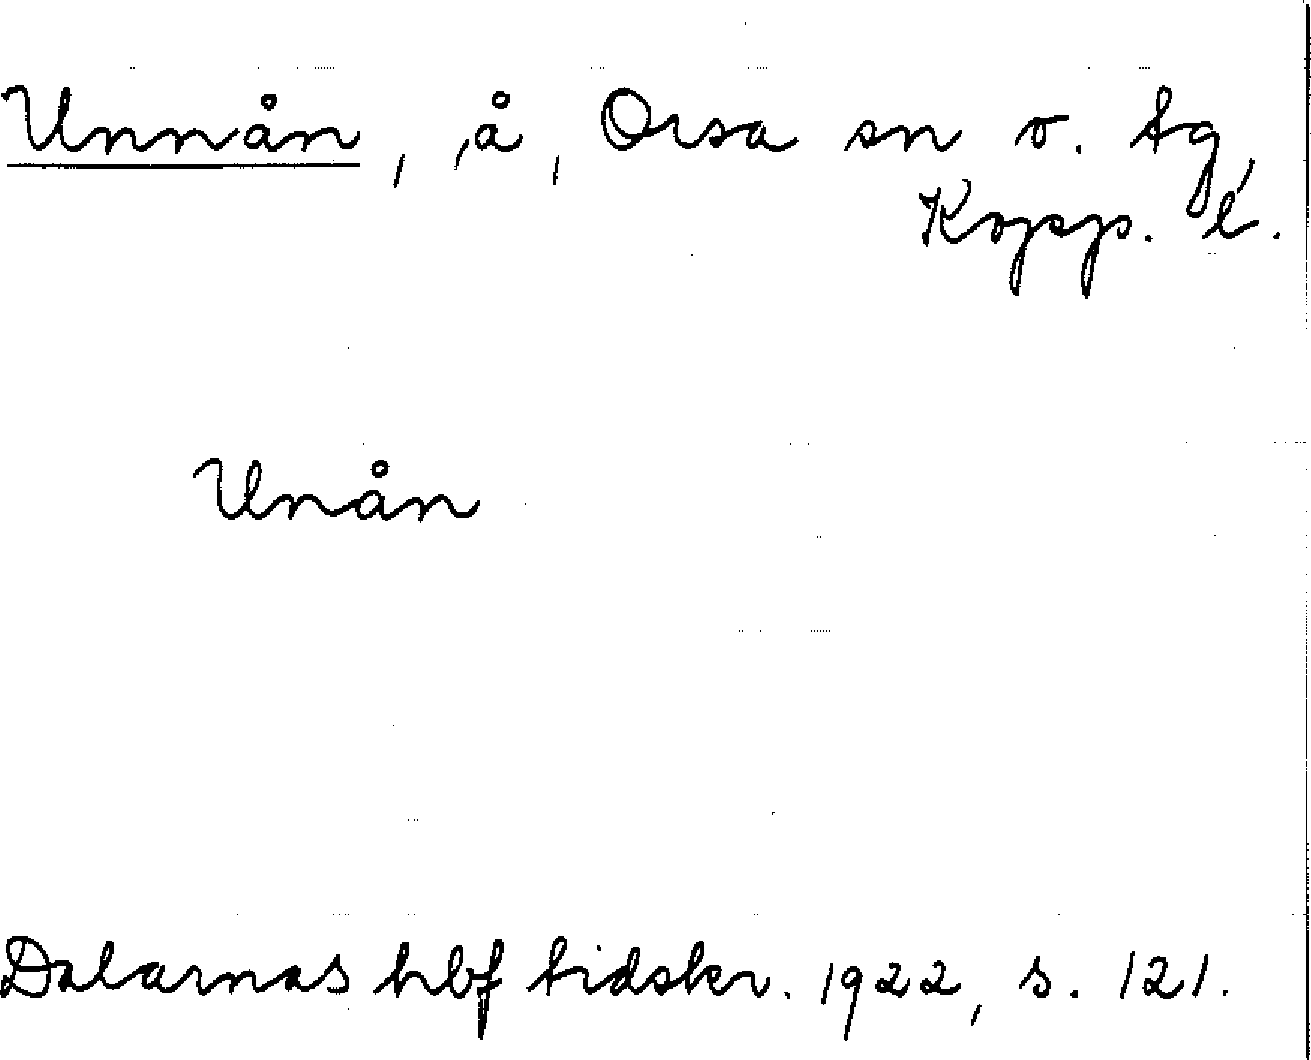 Unnån, å, Orsa sn o. tg,
Kopp. l.
Unån
Dalarnas hbf tidskr. 1922, s. 121.